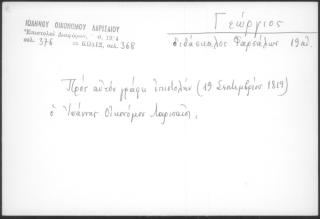 Γεώργιος
διδάσκαλος Φαρσάλων 19 αἰ.
ΙΩΑΝΝΟΥ ΟΙΚΟΝΟΜΟΥ ΛΑΡΙΣΑΙΟΥ
"Επιστολαί Διαφόρων,
σελ. 376 σελ. 368
Πρὸς αὐτὸν γράφει ἐπιστολὴν (19 Σεπτεμβρίου 1819)
ὁ Ἰωάννης Οἰκονόμου Λαρισαῖος.